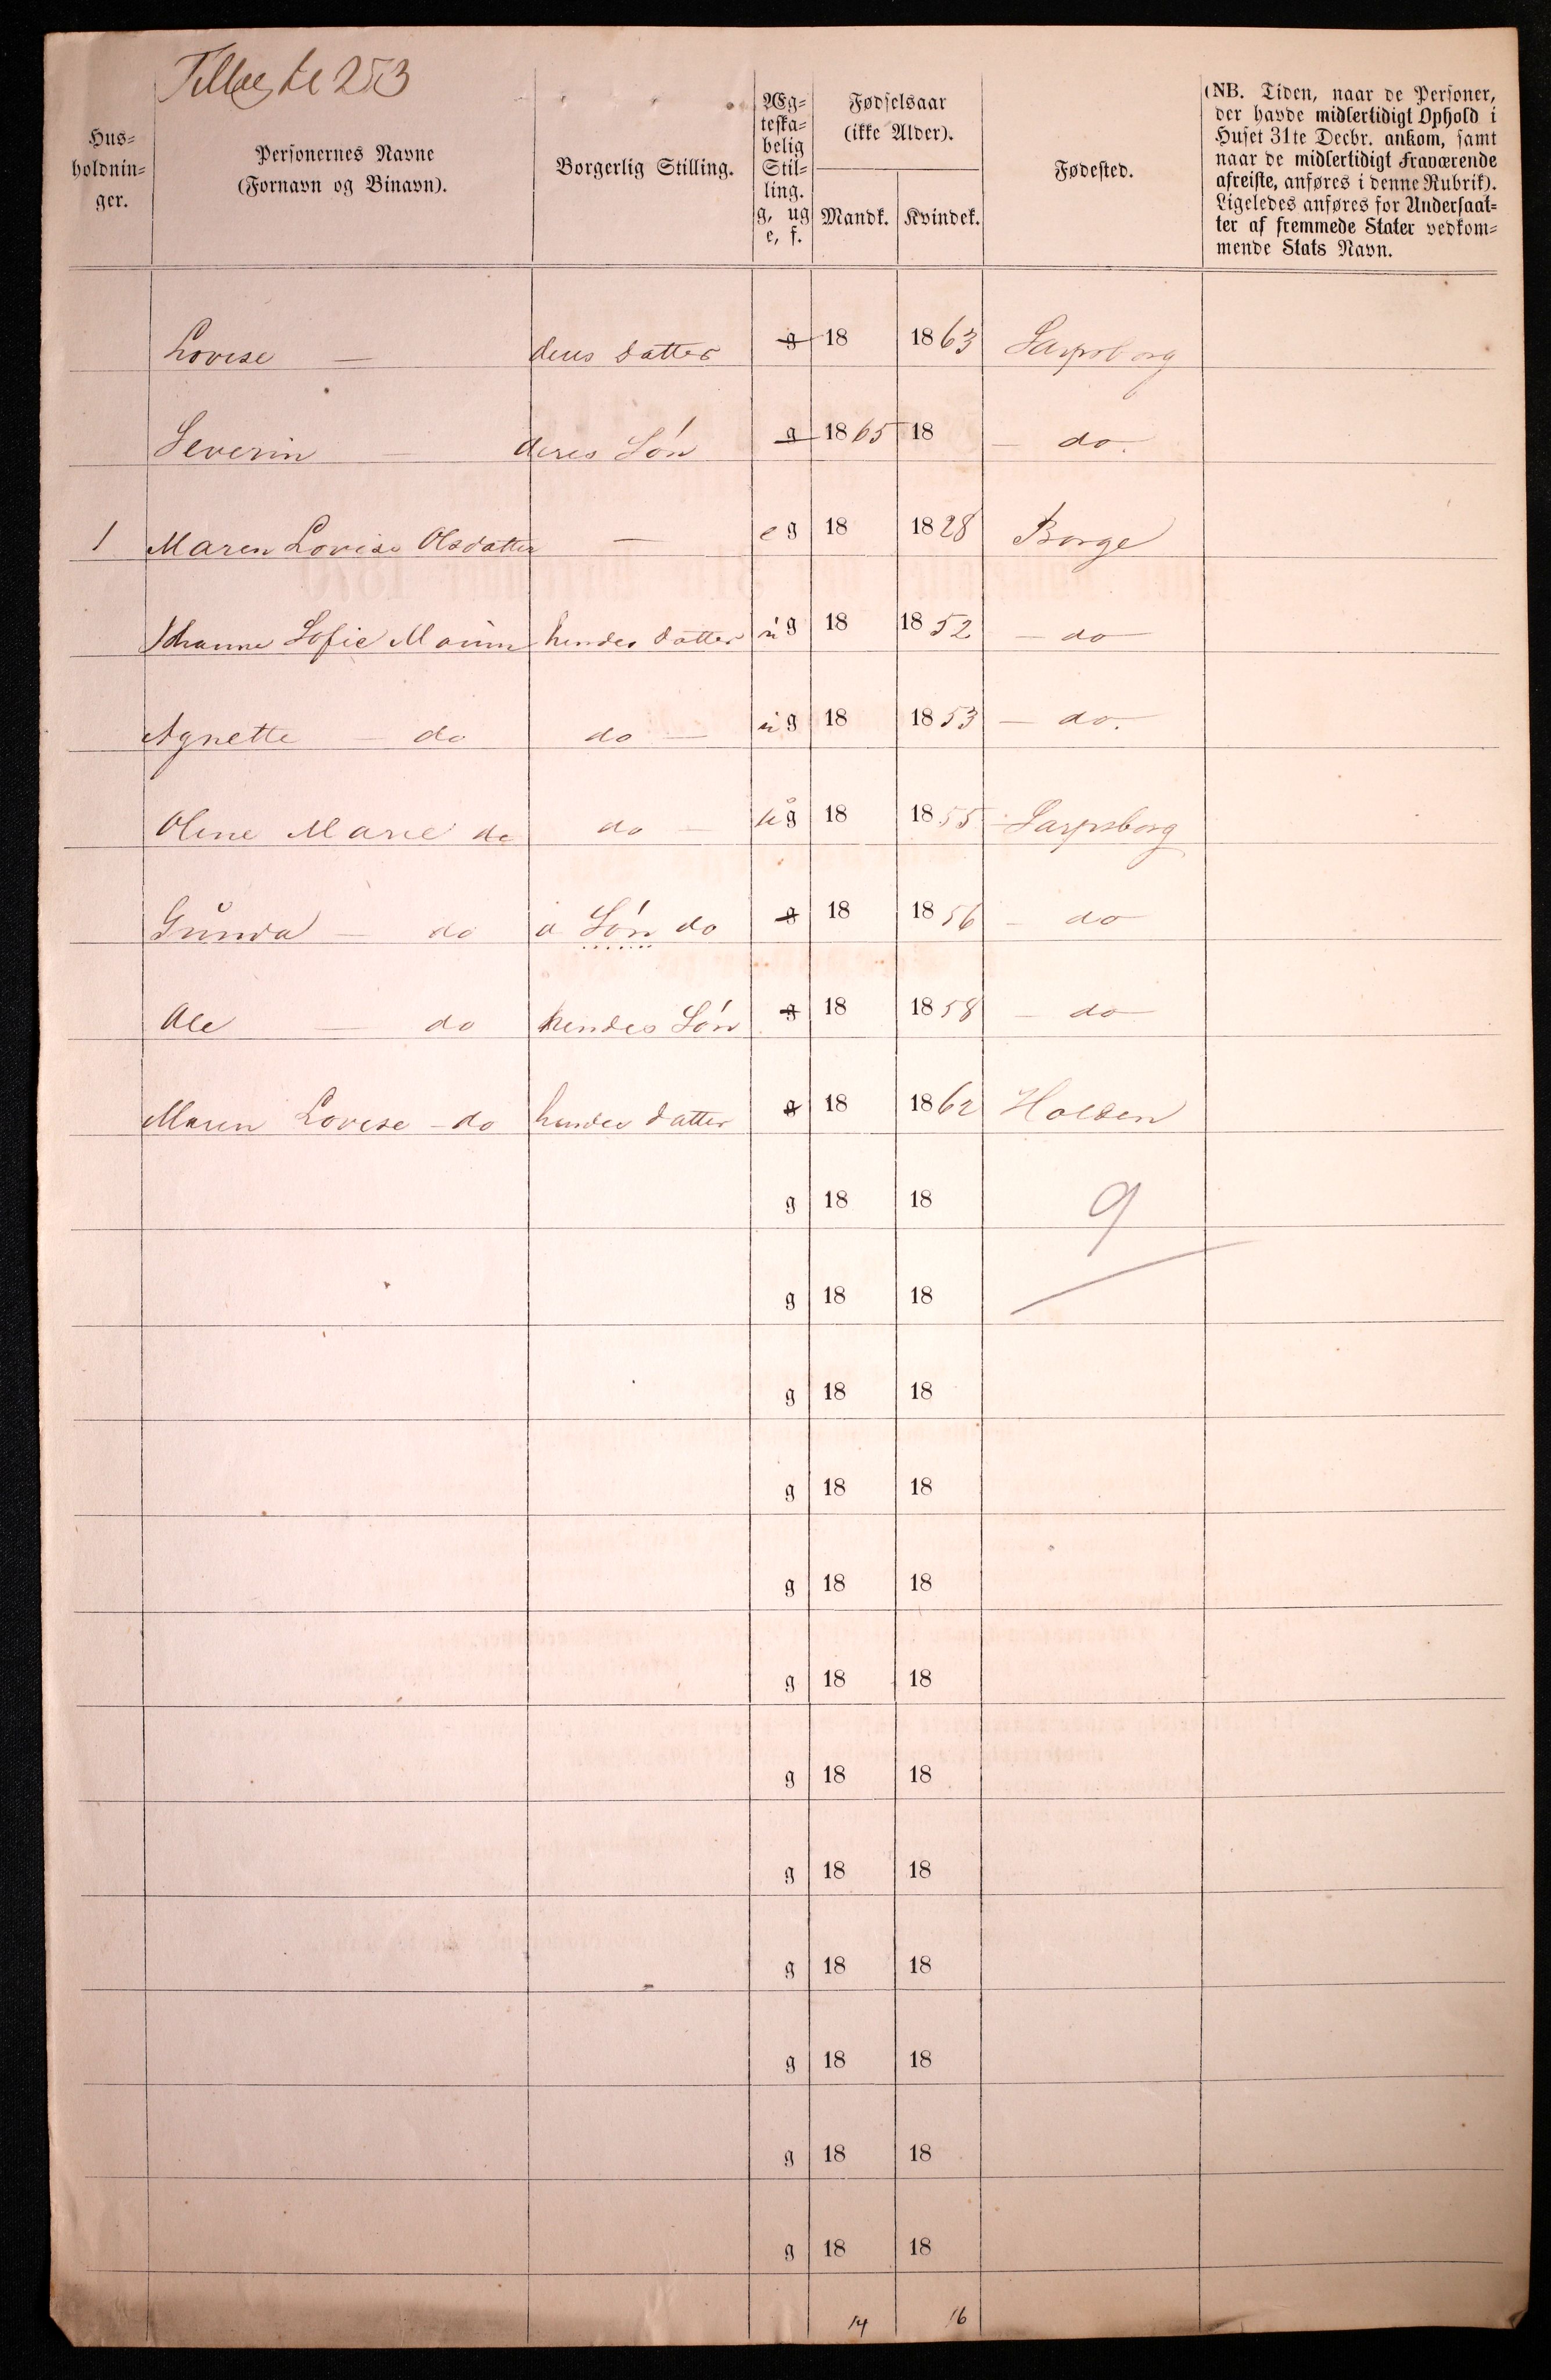 Tillæg til 253
Hus-
holdnin-
ger.
Personernes Navne
(Fornavn og Binavn).
Borgerlig Stilling.
Æg-
teska-
belig
Stil-
ling.
g, ug
e, f.
Fødselsaar
(ikke Alder).
Mandk. Kvindek.
Fødested.
(NB. Tiden, naar de Personer,
der havde midlertidigt Ophold i
Huset 31te Decbr. ankom, samt
naar de midlertidigt Fraværende
afreiste, anføres i denne Rubrik).
Ligeledes anføres for Undersaat-
ter af fremmede Stater vedkom-
mende Stats Navn.
Lovise — deres datter g 18 1863 Sarpsborg
Severin — deres Són g 1865 18 — do.
1 Maren Lovise Olsdatter — e g 18 1828 Borge
Johanne Sofie hendes datter u g 18 1852 — do —
Agnette — do do — u g 18 1853 — do.
Oline Marie do do — u g 18 1855 Sarpsborg
Gunda — do Són do g 18 1856 — do
Ole — do hendes Són g 18 1858 — do
Maren Lovise - do hendes datter g 18 1862 Halden
g 18 18 9
g 18 18
g 18 18
g 18 18
g 18 18
g 18 18
g 18 18
g 18 18
g 18 18
g 18 18
g 18 18
g 18 18
14 16